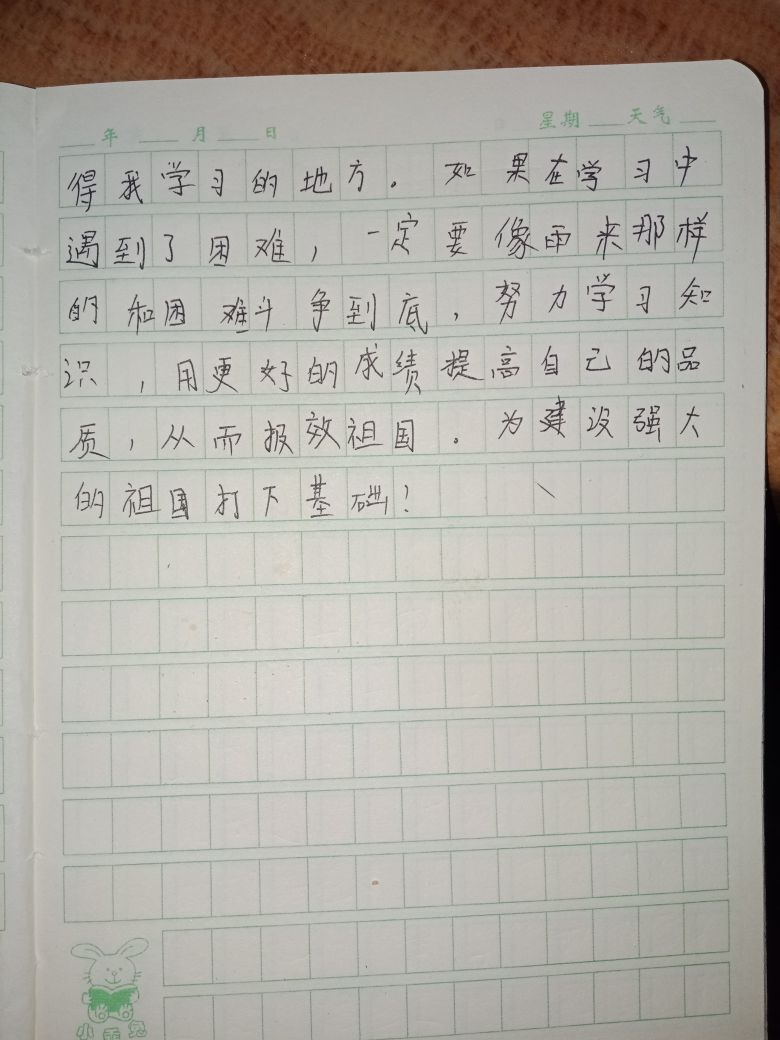 年 月 日 星期 天气
得我学习的地方。如果在学习中
遇到了困难，一定要像雨来那样
的和困难斗争到底，努力学习知
识，用更好的成绩提高自己的品
质，从而报效祖国。为建设强大
的祖国打下基础！